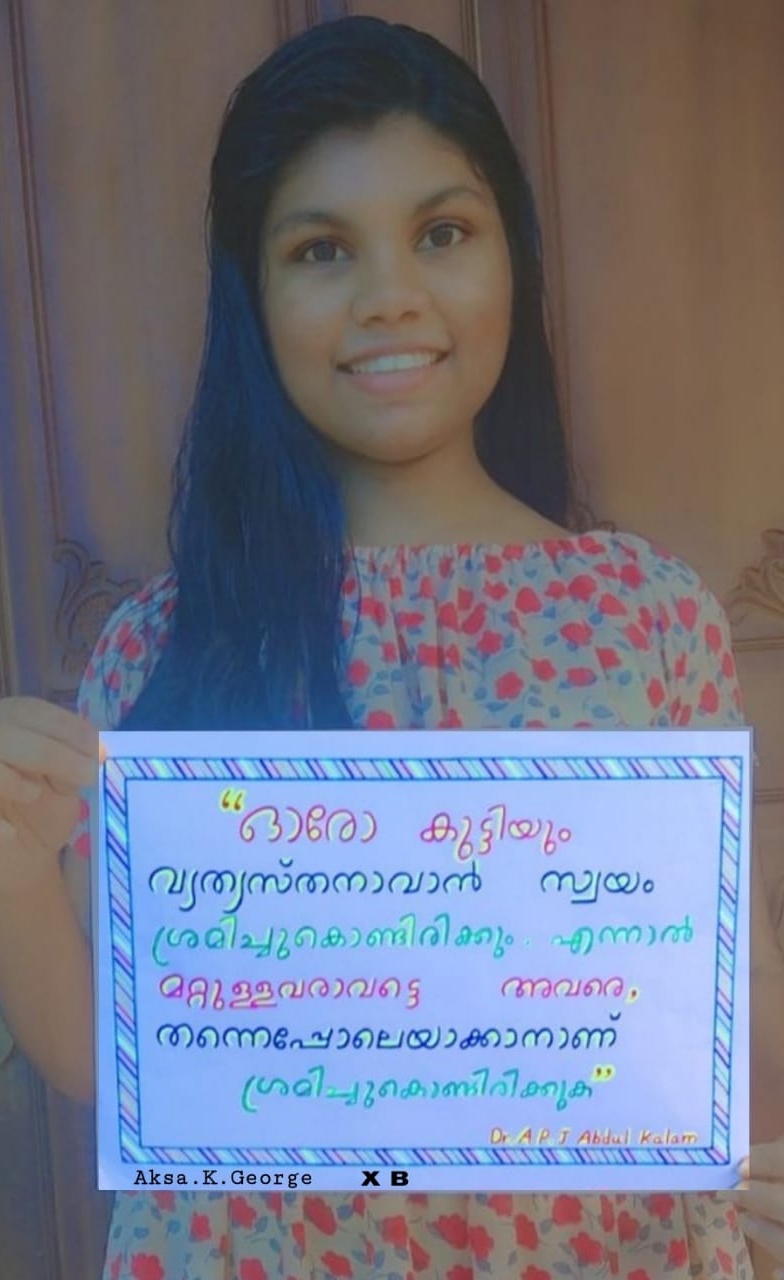 “ഓരോ കുട്ടിയും
വ്യത്യസ്തനാവാൻ സ്വയം
ശ്രമിച്ചുകൊണ്ടിരിക്കും. എന്നാൽ
മറ്റുള്ളവരാവട്ടെ അവരെ,
തന്നെപ്പോലെയാക്കാനാണ്
ശ്രമിച്ചുകൊണ്ടിരിക്കുക”
Dr. A P J Abdul Kalam
Aksa.K.George X B